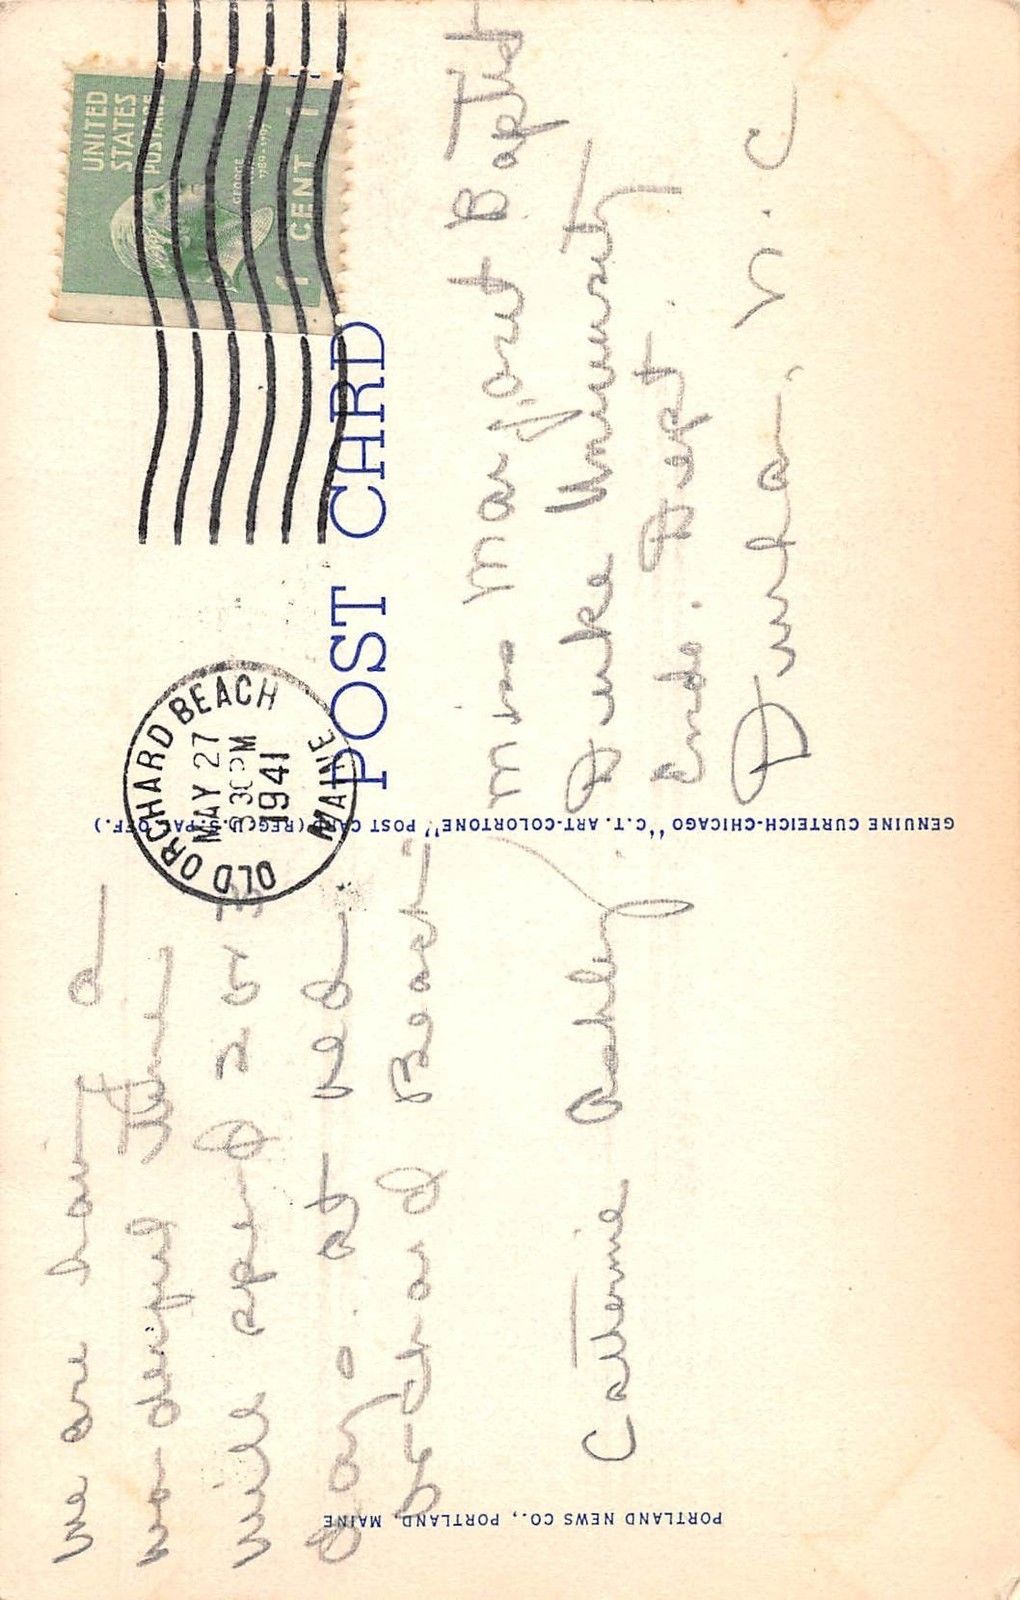 UNITED
STATES
POSTAGE
GEORGE
1789-1797
1 CENT 1
OLD ORCHARD BEACH
MAY 27
5 30 PM
1941
MAINE
POST CARD
we are hav a
wonderful Time
will spend 2 or 3
days at
Orchard Beach
Catherine Ashley
Miss Margaret Baptist
Duke University
Endo. Dept.
Durham, N.C
GENUINE CURTEICH-CHICAGO "C.T. ART-COLORTONE" POST CARD (REG. U.S. PAT. OFF.)
PORTLAND NEWS CO., PORTLAND, MAINE